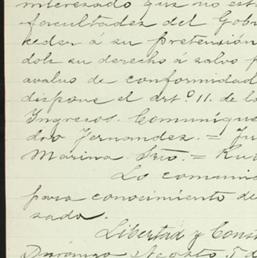 interesado que no est
facultades del Gobi
ceder á su pretensión
dole su derecho á salvo p
avaluo de conformidad
dispone el artº 11. de la
Ingresos. Comuníque
dro Fernandez. = Ju
Marina Srio. = Rú
Lo comunic
para conocimiento de
sado.
Libertad y Cons
Durango Agosto 5 d